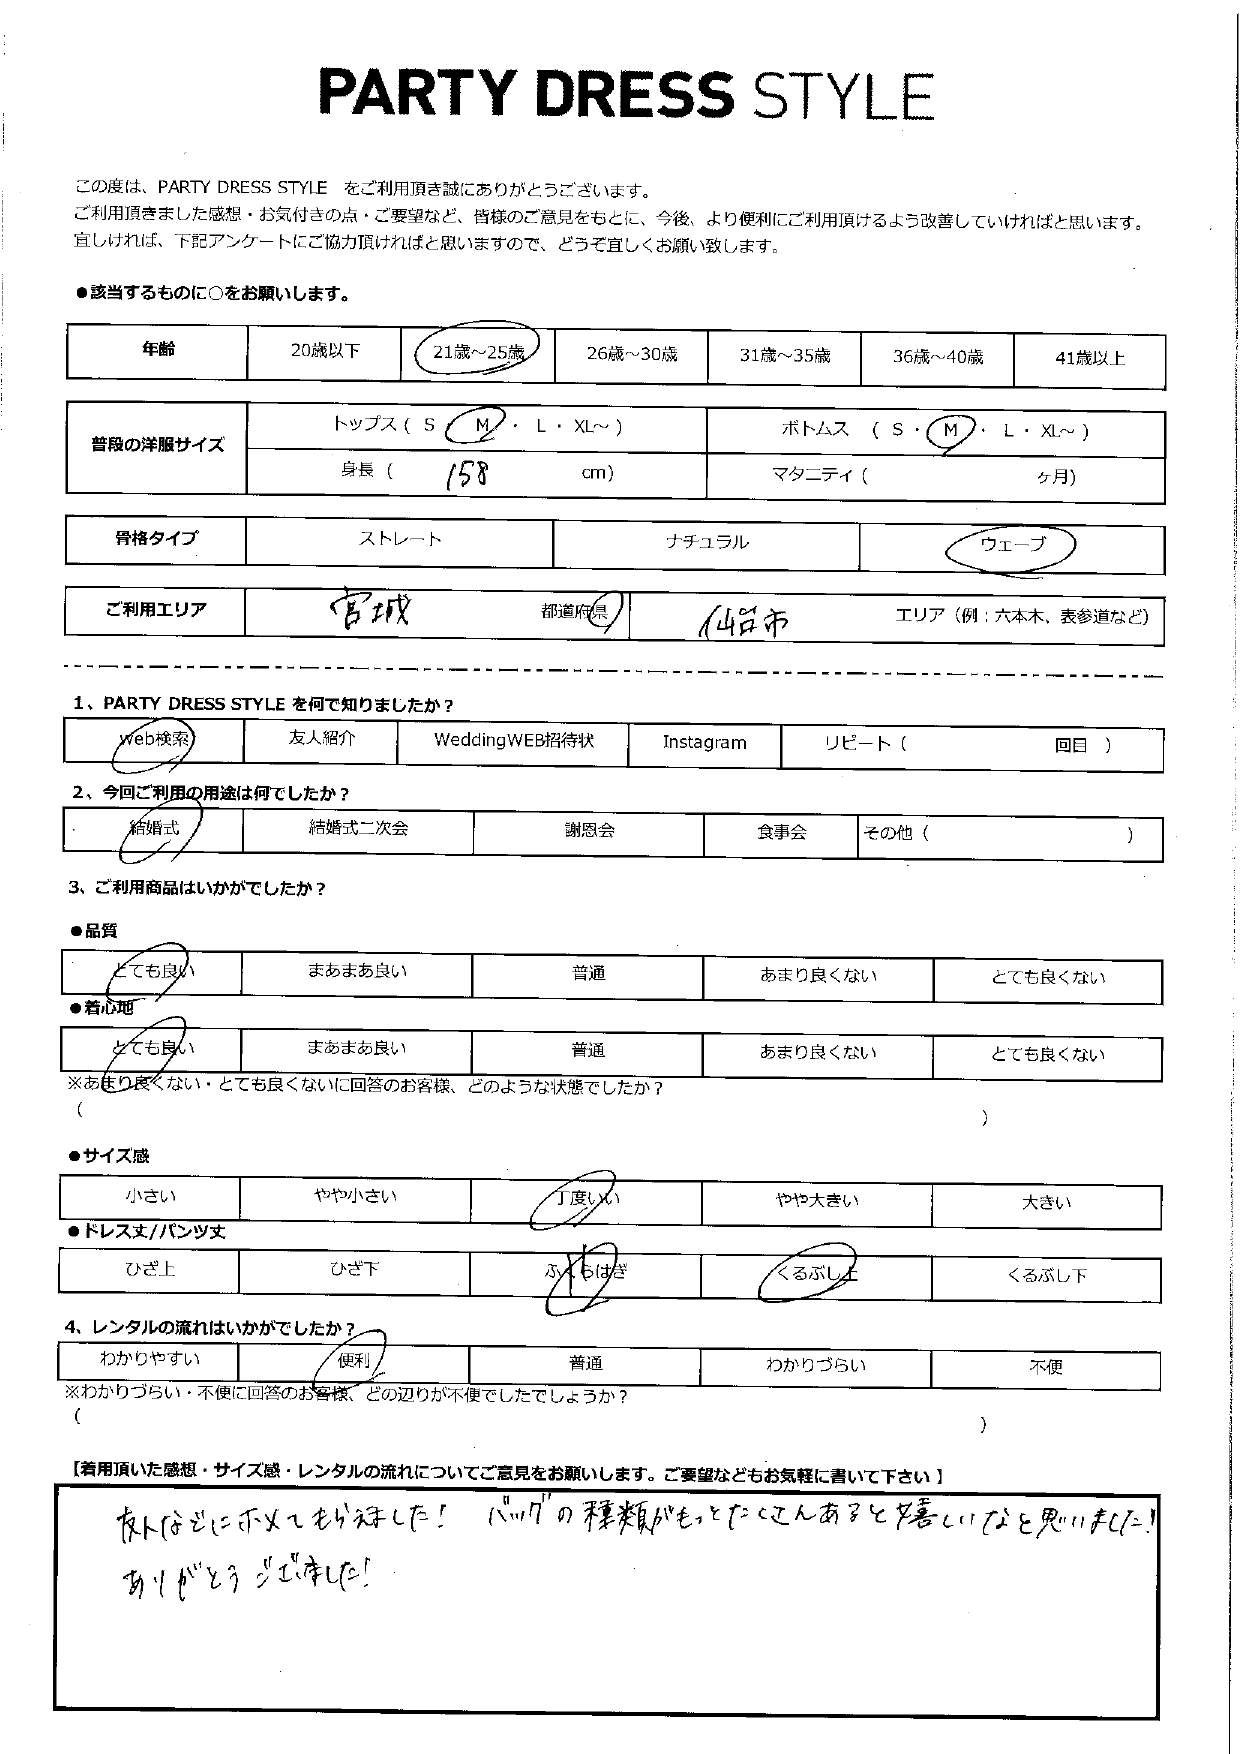 PARTY DRESS STYLE
この度は、PARTY DRESS STYLE をご利用頂き誠にありがとうございます。
ご利用頂きました感想・お気付きの点・ご要望など、皆様のご意見をもとに、今後、より便利にご利用頂けるよう改善していければと思います。
宜しければ、下記アンケートにご協力頂ければと思いますので、どうぞ宜しくお願い致します。
●該当するものに○をお願いします。
年齢 20歳以下 21歳～25歳 26歳～30歳 31歳～35歳 36歳～40歳 41歳以上
普段の洋服サイズ
トップス ( S ・ M ・ L ・ XL～ ) ボトムス ( S ・ M ・ L ・ XL～ )
身長 ( 158 cm) マタニティ ( ヶ月)
骨格タイプ ストレート ナチュラル ウェーブ
ご利用エリア 宮城 都道府県 仙台市 エリア（例：六本木、表参道など）
1、PARTY DRESS STYLE を何で知りましたか？
Web検索 友人紹介 WeddingWEB招待状 Instagram リピート ( 回目 )
2、今回ご利用の用途は何でしたか？
結婚式 結婚式二次会 謝恩会 食事会 その他 ( )
3、ご利用商品はいかがでしたか？
●品質
とても良い まあまあ良い 普通 あまり良くない とても良くない
●着心地
とても良い まあまあ良い 普通 あまり良くない とても良くない
※あまり良くない・とても良くないに回答のお客様、どのような状態でしたか？
( )
●サイズ感
小さい やや小さい 丁度いい やや大きい 大きい
●ドレス丈/パンツ丈
ひざ上 ひざ下 ふくらはぎ くるぶし上 くるぶし下
4、レンタルの流れはいかがでしたか？
わかりやすい 便利 普通 わかりづらい 不便
※わかりづらい・不便に回答のお客様、どの辺りが不便でしたでしょうか？
( )
【着用頂いた感想・サイズ感・レンタルの流れについてご意見をお願いします。ご要望などもお気軽に書いて下さい 】
友人などにホメてもらえました！ バッグの種類がもっとたくさんあると嬉しいなと思いました！
ありがとうございました！